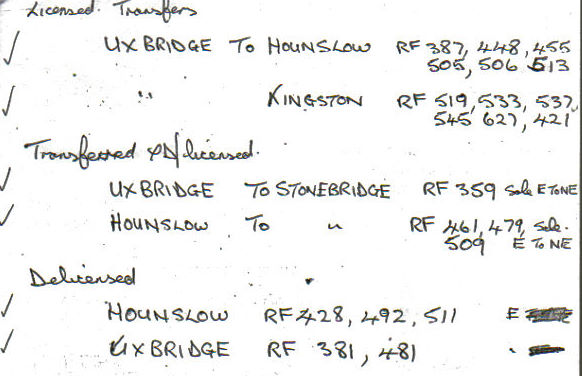 Licensed. Transfers
✓ UXBRIDGE To HOUNSLOW RF 387, 448, 455
505, 506 513
✓ " KINGSTON RF 519, 533, 537,
545 627, 421
Transferred & D/licensed.
✓ UXBRIDGE To STONEBRIDGE RF 359 Sale E To NE
✓ HOUNSLOW To " RF 461, 479, Sale.
509 E To NE
Delicensed
✓ HOUNSLOW RF 428, 492, 511 E
✓ UXBRIDGE RF 381, 481 "